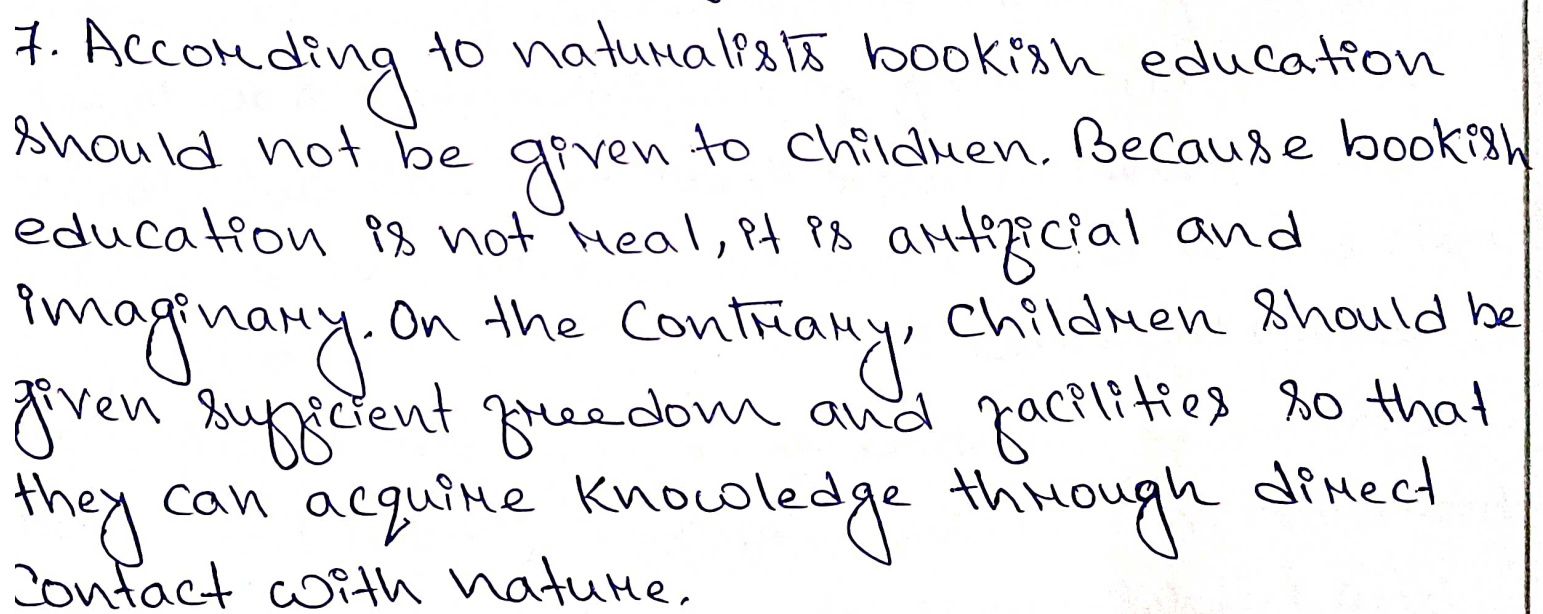 7. According to naturalists bookish education
should not be given to children. Because bookish
education is not real, it is artificial and
imaginary. On the contrary, children should be
given sufficient freedom and facilities so that
they can acquire knowledge through direct
contact with nature.